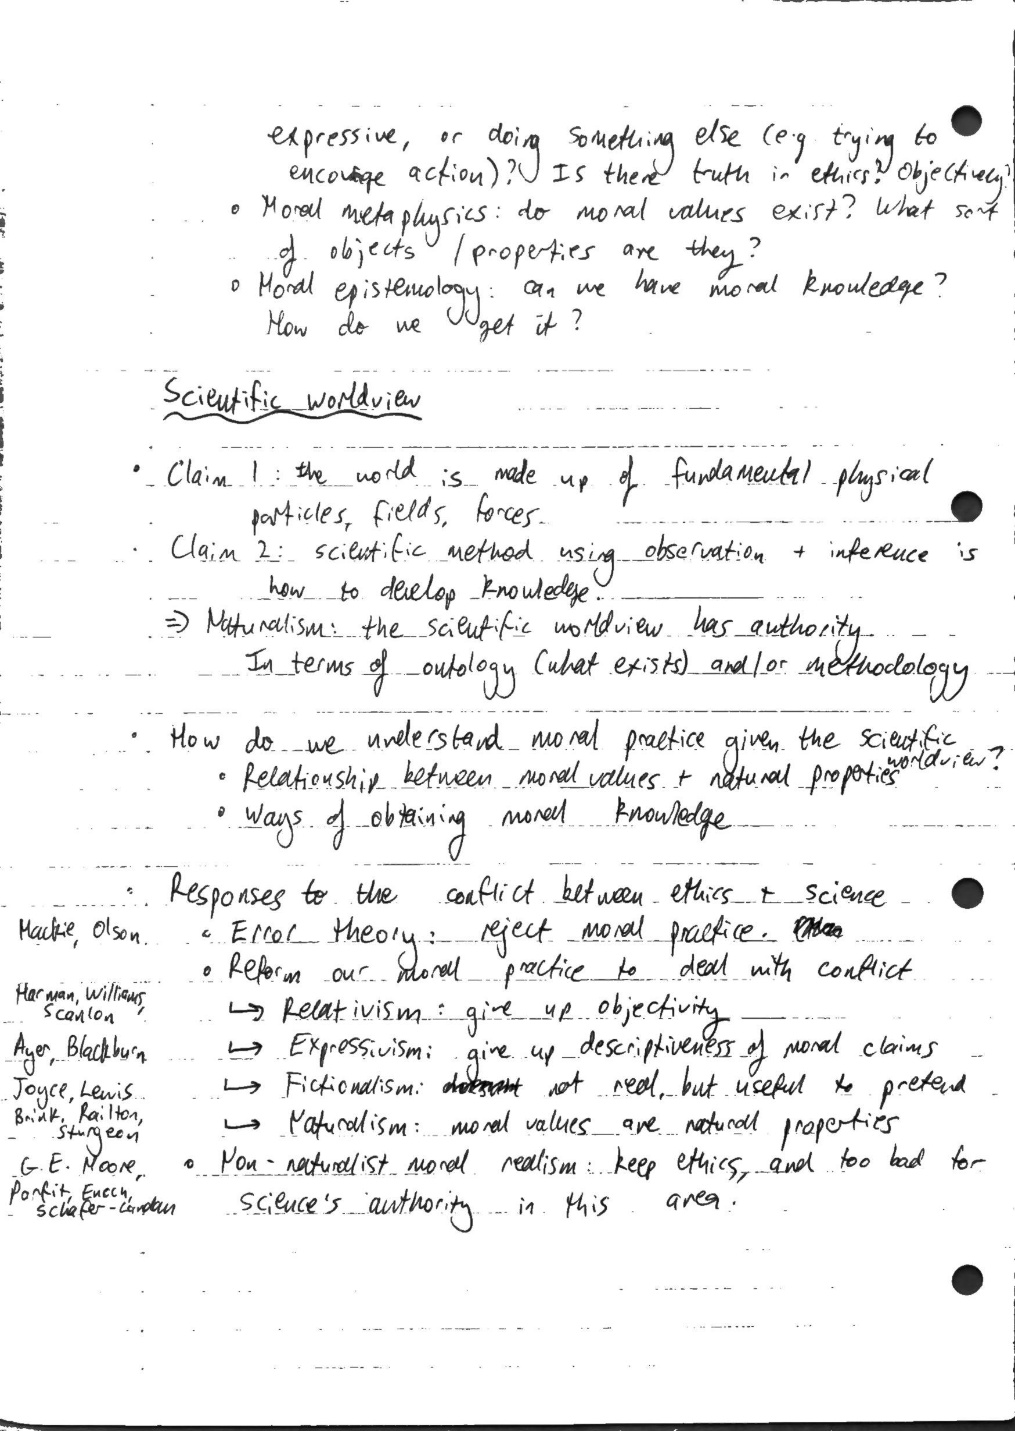 expressive, or doing something else (e.g trying to
encourage action)? Is there truth in ethics? Objectively?
◦ Moral metaphysics: do moral values exist? What sort
of objects / properties are they?
◦ Moral epistemology: can we have moral knowledge?
How do we get it?
Scientific worldview
• Claim 1: the world is made up of fundamental physical
particles, fields, forces.
• Claim 2: scientific method using observation + inference is
how to develop knowledge.
⇒ Naturalism: the scientific worldview has authority
In terms of ontology (what exists) and/or methodology
• How do we understand moral practice given the scientific
worldview?
◦ Relationship between moral values + natural properties
◦ Ways of obtaining moral knowledge
• Responses to the conflict between ethics + science
Mackie, Olson ◦ Error theory: reject moral practice.
◦ Reform our moral practice to deal with conflict
Harman, Williams,
Scanlon ↳ Relativism: give up objectivity
Ayer, Blackburn ↳ Expressivism: give up descriptiveness of moral claims
Joyce, Lewis ↳ Fictionalism: not real, but useful to pretend
Brink, Railton,
Sturgeon ↳ Naturalism: moral values are natural properties
G.E. Moore, ◦ Non-naturalist moral realism: keep ethics, and too bad for
Parfit, Enoch,
Schafer-Landau science's authority in this area.